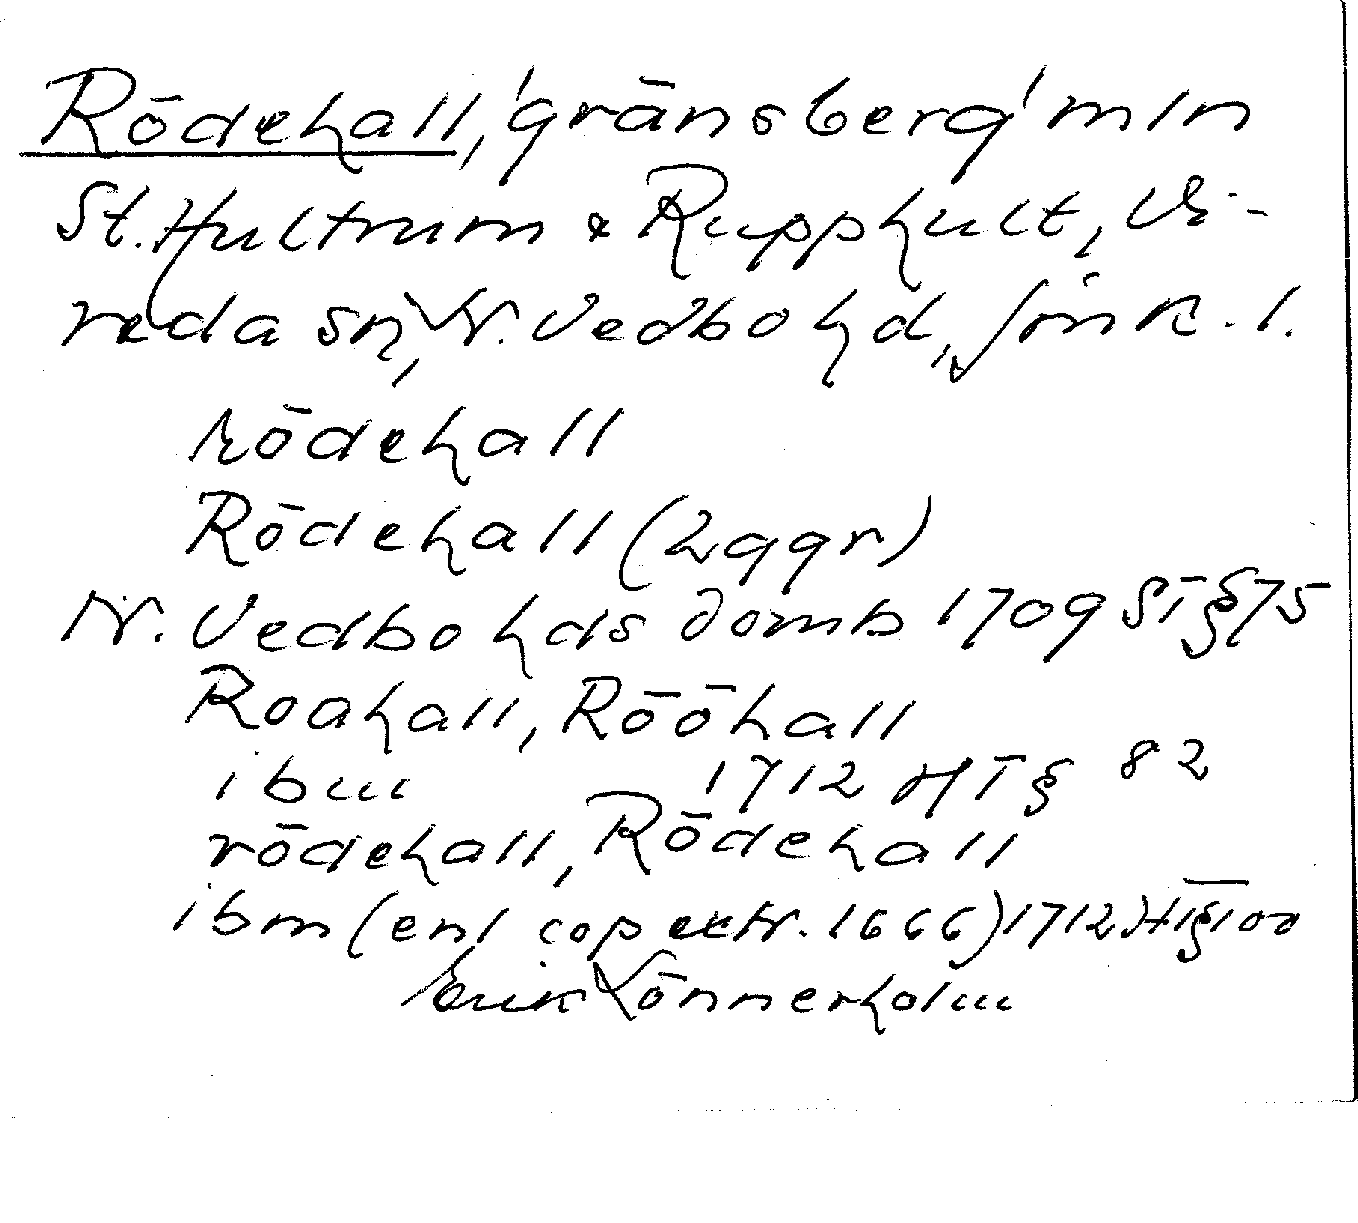 Rödehall, 'gränsberg' mln
St. Hultrum & Rupphult, Vi-
reda sn, N. Vedbo hd, Jönk. l.
rödehall
Rödehall (2 ggr)
N. Vedbo hds domb 1709 ST § 75
Roahall, Rööhall
ibm 1712 HT § 82
rödehall, Rödehall
ibm (enl cop extr. 1666) 1712 HT § 100
Erik Lönnerholm